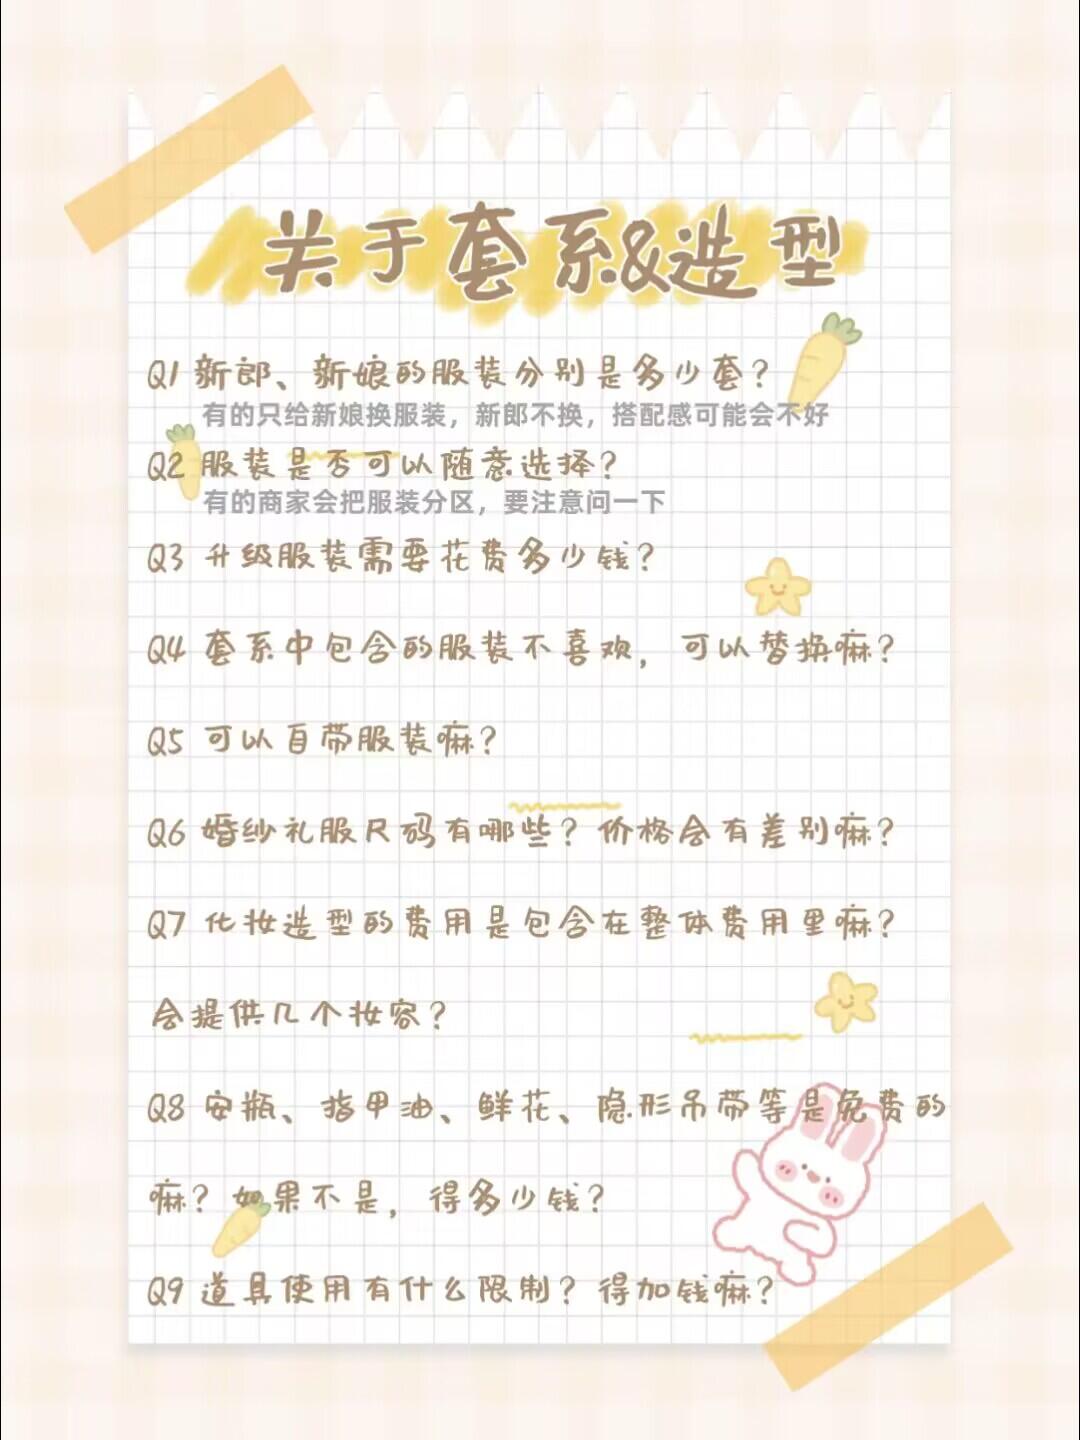 关于套系&造型
Q1 新郎、新娘的服装分别是多少套?
有的只给新娘换服装，新郎不换，搭配感可能会不好
Q2 服装是否可以随意选择?
有的商家会把服装分区，要注意问一下
Q3 升级服装需要花费多少钱?
Q4 套系中包含的服装不喜欢，可以替换嘛?
Q5 可以自带服装嘛?
Q6 婚纱礼服尺码有哪些? 价格会有差别嘛?
Q7 化妆造型的费用是包含在整体费用里嘛?
会提供几个妆容?
Q8 安瓶、指甲油、鲜花、隐形吊带等是免费的
嘛? 如果不是，得多少钱?
Q9 道具使用有什么限制? 得加钱嘛?